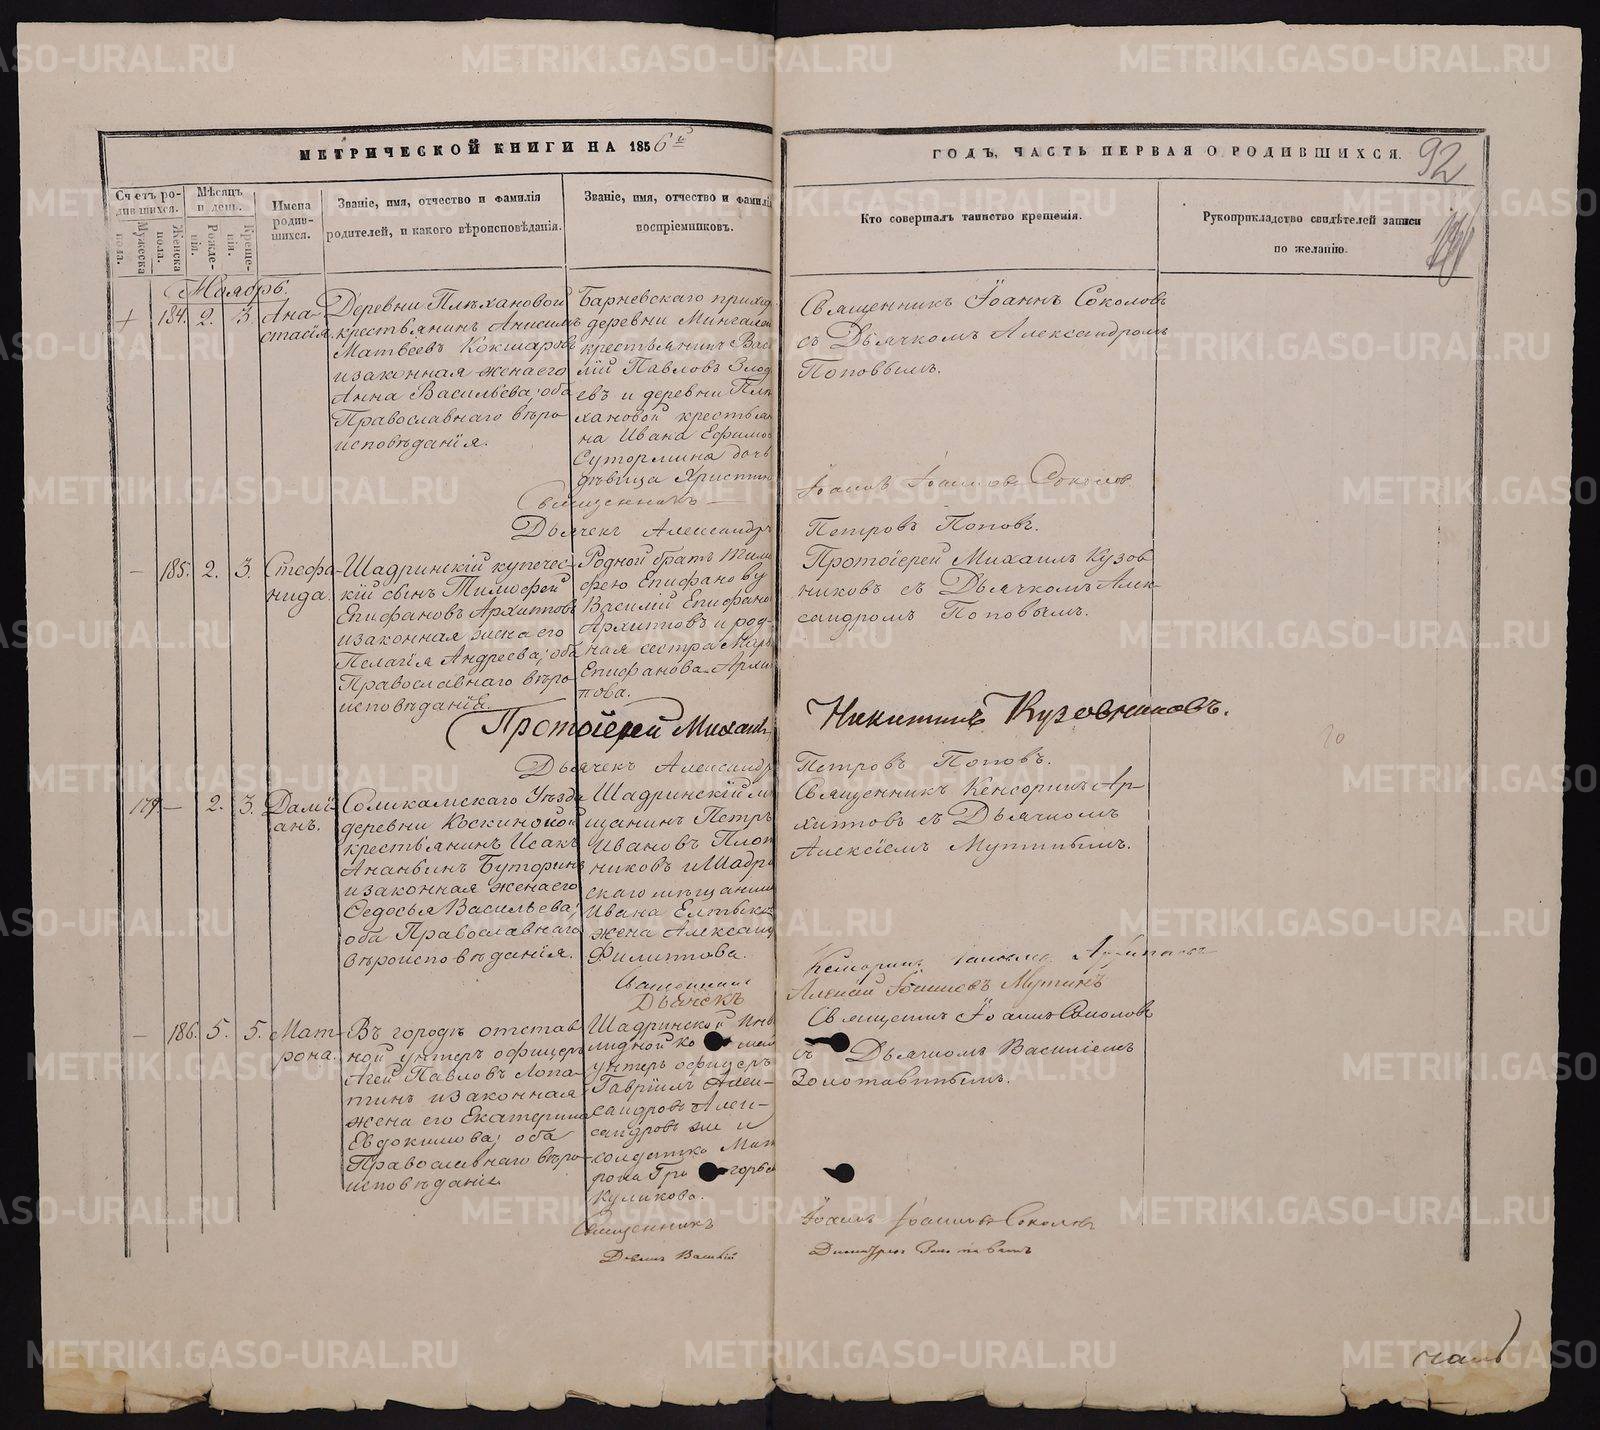 МЕТРИЧЕСКОЙ КНИГИ НА 1856й
ГОДЪ, ЧАСТЬ ПЕРВАЯ О РОДИВШИХСЯ.
92
Счетъ родившихся.
Мужеска пола.
Женска пола.
Мѣсяцъ и день.
Рожденія.
Крещенія.
Имена родившихся.
Званіе, имя, отчество и фамилія
родителей, и какого вѣроисповѣданія.
Званіе, имя, отчество и фамилія
воспріемниковъ.
Кто совершалъ таинство крещенія.
Рукоприкладство свидѣтелей записи
по желанію.
Ноябрь.
184. 2. 3.
Ана-
стасія.
Деревни Плѣхановой
крестьянинъ Анисимъ
Матвѣевъ Кокшаровъ
и законная жена его
Анна Васильева; оба
Православнаго вѣро
исповѣданія.
Барневскаго приход
деревни Мингалев
крестьянинъ Васи
лій Павловъ Злод
евъ и деревни Плѣ
хановой крестья
на Ивана Ефимов
Сутормина дочь
дѣвица Христин
Священникъ Іоаннъ Соколовъ
съ Дьячкомъ Александромъ
Поповымъ.
Священникъ
Іоаннъ Іоанновъ Соколовъ
Дьячекъ Александръ
Петровъ Поповъ.
— 185. 2. 3.
Стефа-
нида.
Шадринскій купечес-
кій сынъ Тимофей
Епифановъ Архиповъ
и законная жена его
Пелагія Андреева; оба
Православнаго вѣро
исповѣданія.
Родной братъ Тимо
фею Епифанову
Василій Епифано
Архиповъ и род-
ная сестра Марь
Епифанова Архи
пова.
Протоіерей Михаилъ Кузов
никовъ съ Дьячкомъ Алек-
сандромъ Поповымъ.
Протоіерей Михаилъ
Никитинъ Кузовниковъ.
Дьячекъ Александръ
Петровъ Поповъ.
179. — 2. 3.
Дамі-
анъ.
Соликамскаго Уѣзда
деревни Коскиновой
крестьянинъ Исакъ
Ананьинъ Буторинъ
и законная жена его
Ѳедосья Васильева;
оба Православнаго
вѣроисповѣданія.
Шадринскій мѣ
щанинъ Петръ
Ивановъ Плот
никовъ и Шадри
скаго мѣщанина
Ивана
жена Александ
Филиппова.
Священникъ Кенсоринъ Ар-
хиповъ съ Дьячкомъ
Алексѣемъ Мутинымъ.
Священникъ
Кенсоринъ Архиповъ
Дьячекъ
Алексѣй Іоанновъ Мутинъ
— 186. 5. 5.
Мат-
рона.
Въ городѣ отстав
ной унтеръ офицеръ
Агей Павловъ Лопа-
тинъ и законная
жена его Екатерина
Евдокимова; оба
Православнаго вѣро-
исповѣданія.
Шадринской Инва
лидной ко
унтеръ офицеръ
Гавріилъ Алек-
сандровъ Алек-
сандровъ же и
солдатка Мат
рона Гри горье
Куликова.
Священникъ Іоаннъ Соколовъ
съ Дьячкомъ Василіемъ
Золотавинымъ.
Священникъ
Іоаннъ Іоанновъ Соколовъ